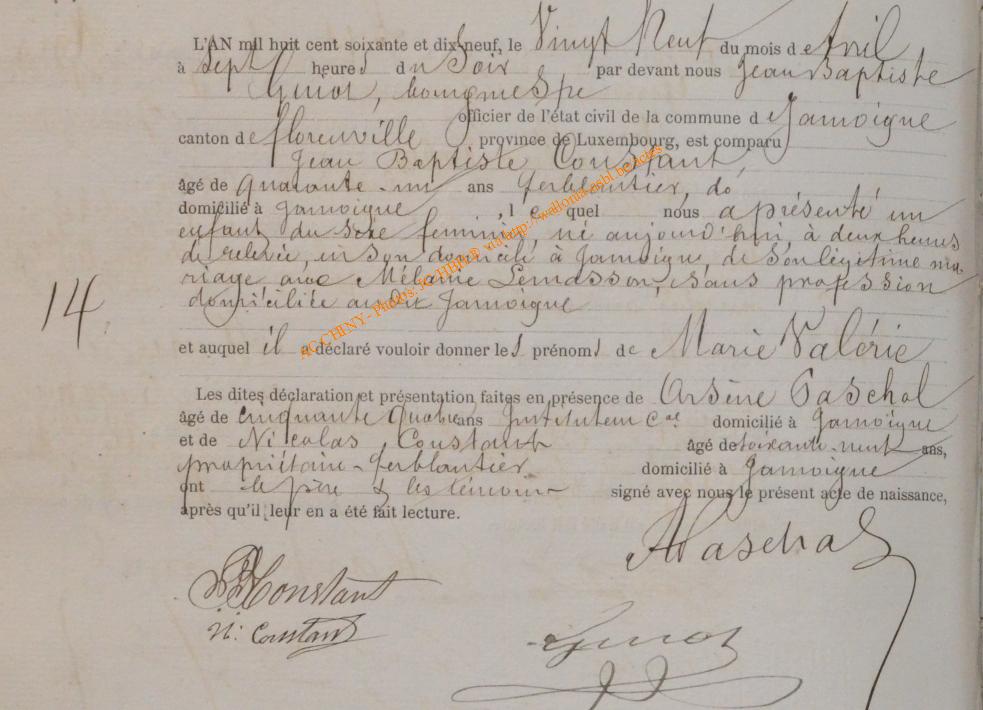 L'AN mil huit cent soixante et dix neuf, le Vingt Neuf du mois d'Avril
à Sept heures du Soir par devant nous Jean Baptiste
Guiot, bourgmestre
officier de l'état civil de la commune de Jamoigne
canton de florenville province de Luxembourg, est comparu
Jean Baptiste Constant,
âgé de quarante-un ans ferblantier, do
domicilié à Jamoigne, lequel nous a présenté un
enfant du sexe féminin, né aujourd'hui, à deux heures
de relevée, en son domicile à Jamoigne, de son légitime ma-
riage avec Mélanie Lemasson, sans profession
domiciliée audit Jamoigne
14
et auquel il a déclaré vouloir donner les prénoms de Marie Valérie
Les dites déclaration et présentation faites en présence de Arsène Paschal
âgé de cinquante quatre ans Instituteur cal domicilié à Jamoigne
et de Nicolas Constant âgé de soixante-neuf ans,
propriétaire-ferblantier domicilié à Jamoigne
ont le père & les témoins signé avec nous le présent acte de naissance,
après qu'il leur en a été fait lecture.
APaschal
JBConstant
N: Constant
Guiot
AGCCHINY - Photos: via http://wallonia-asbl.be/actes